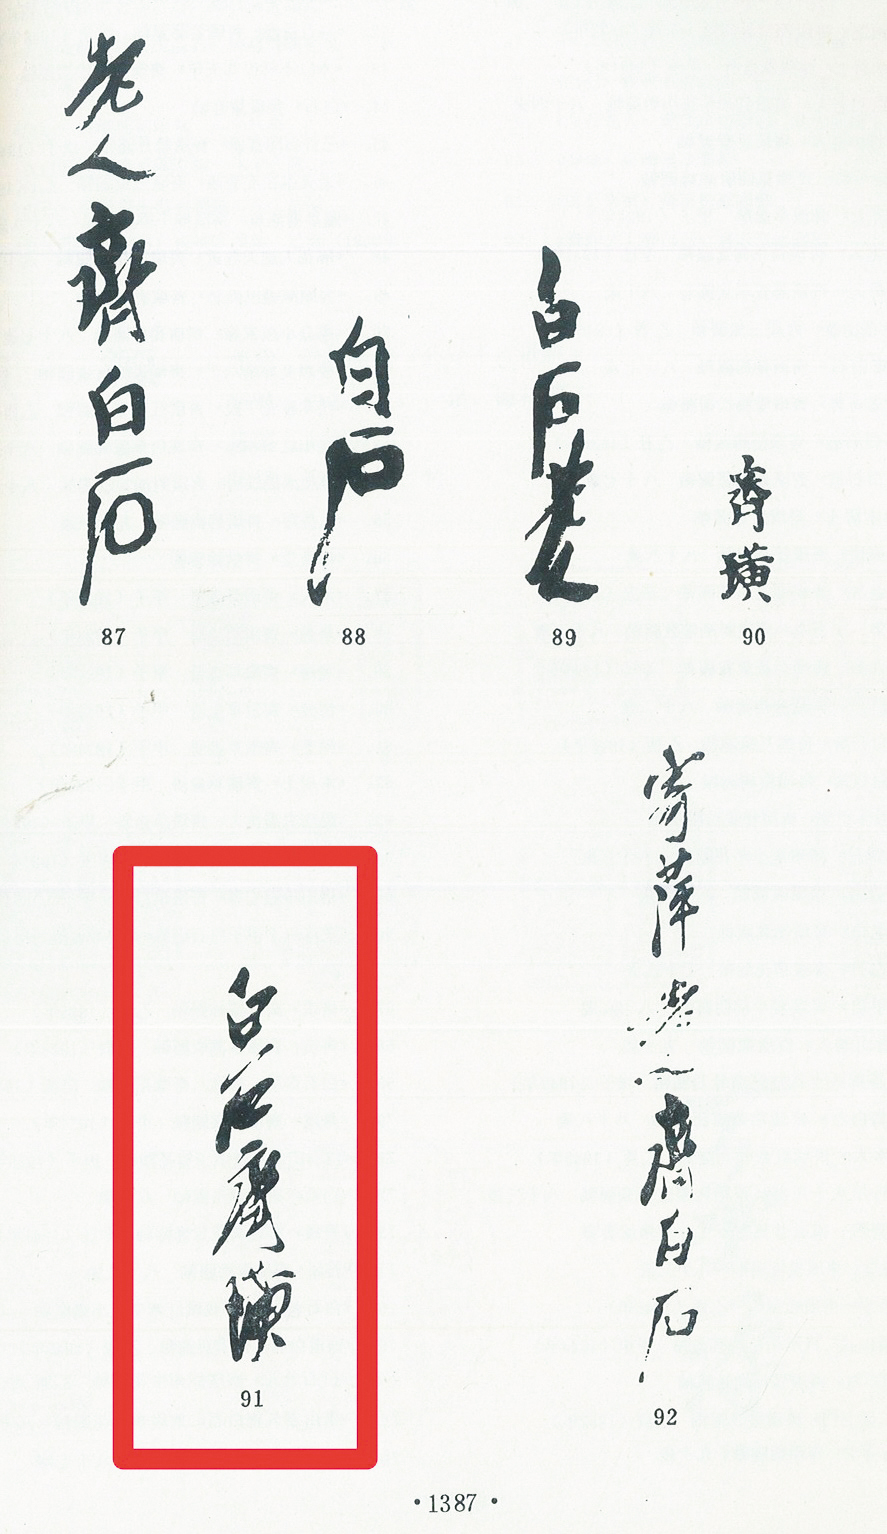 老人齊白石
87
白石
88
白石老人
89
齊璜
90
白石齊璜
91
寄萍堂上老人齊白石
92
·1387·